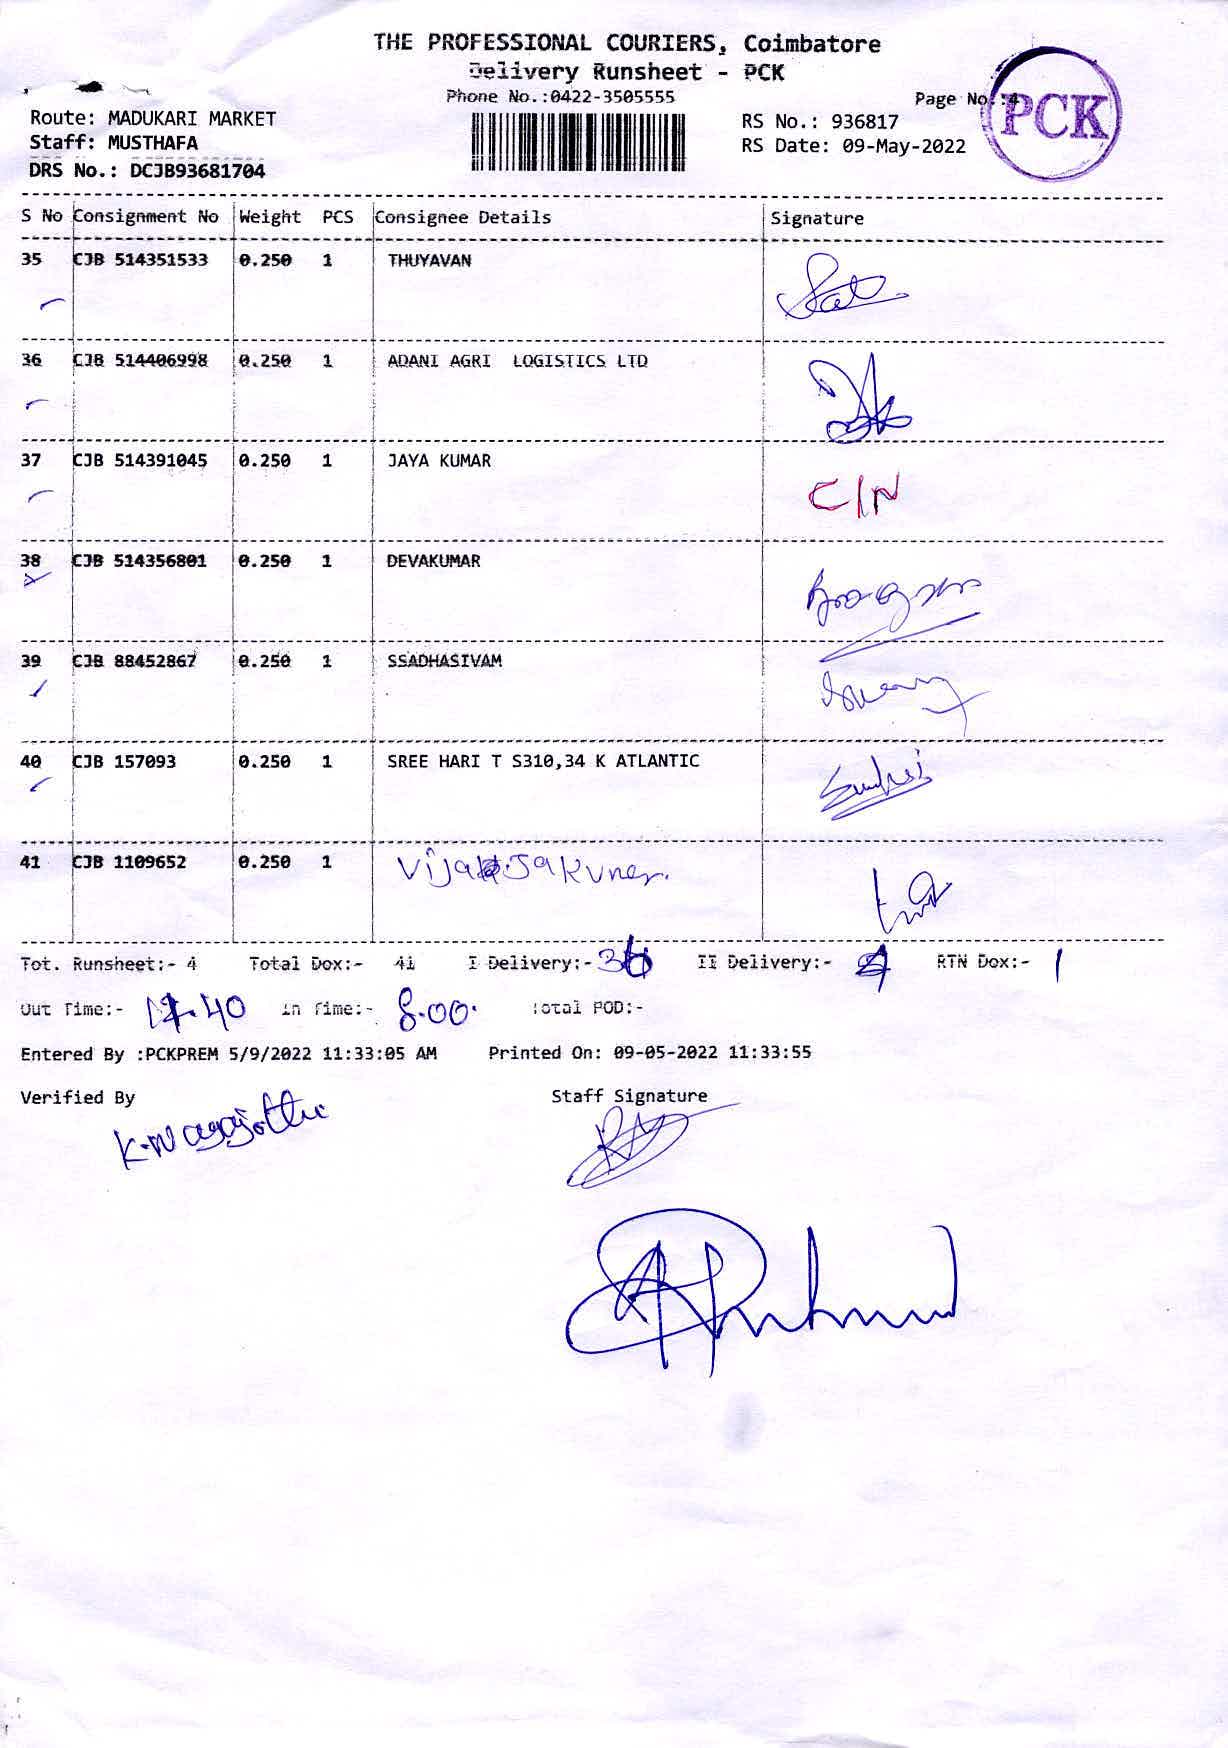 THE PROFESSIONAL COURIERS, Coimbatore
Delivery Runsheet - PCK
Phone No.:0422-3505555
Page No.:4
PCK
Route: MADUKARI MARKET
RS No.: 936817
Staff: MUSTHAFA
RS Date: 09-May-2022
DRS No.: DCJB93681704
S No Consignment No Weight PCS Consignee Details Signature
35 CJB 514351533 0.250 1 THUYAVAN
36 CJB 514406998 0.250 1 ADANI AGRI LOGISTICS LTD
37 CJB 514391045 0.250 1 JAYA KUMAR C/N
38 CJB 514356801 0.250 1 DEVAKUMAR
39 CJB 88452867 0.250 1 SSADHASIVAM
40 CJB 157093 0.250 1 SREE HARI T S310,34 K ATLANTIC
41 CJB 1109652 0.250 1
Tot. Runsheet:- 4 Total Dox:- 41 I Delivery:- 36 II Delivery:- 4 RTN Dox:- 1
Out Time:- 17.40 In Time:- 8.00. Total POD:-
Entered By :PCKPREM 5/9/2022 11:33:05 AM Printed On: 09-05-2022 11:33:55
Verified By Staff Signature